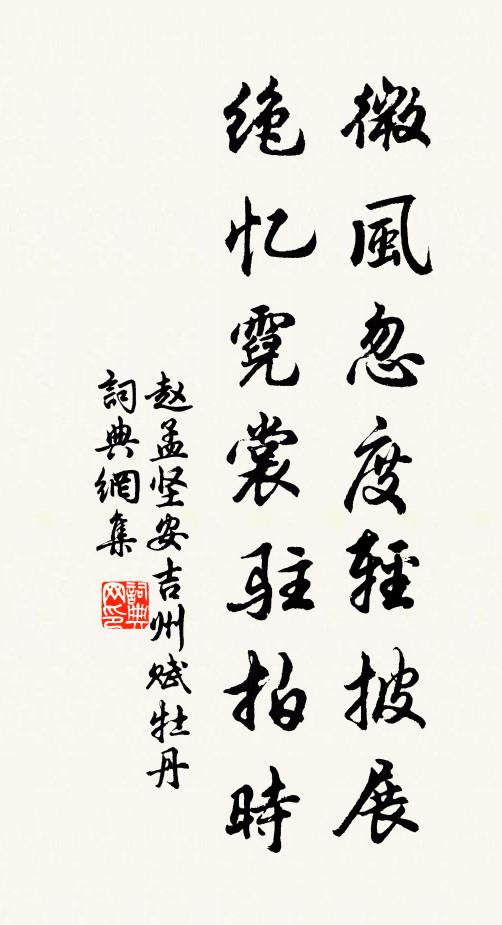 微風忽度輕披展
绝忆霓裳駐拍時
赵孟坚安吉州赋牡丹
詞典網集
詞典网印